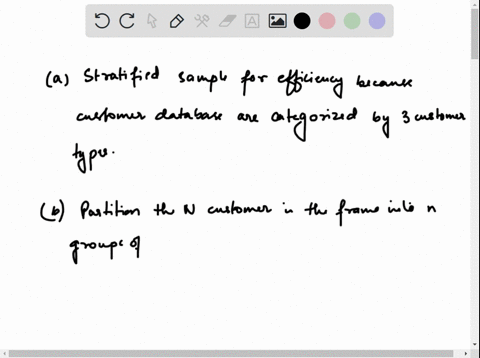 (a) Stratified sample for efficiency because
customer database are categorized by 3 customer
type.
(b) Partition the N customer in the frame into n
groups of